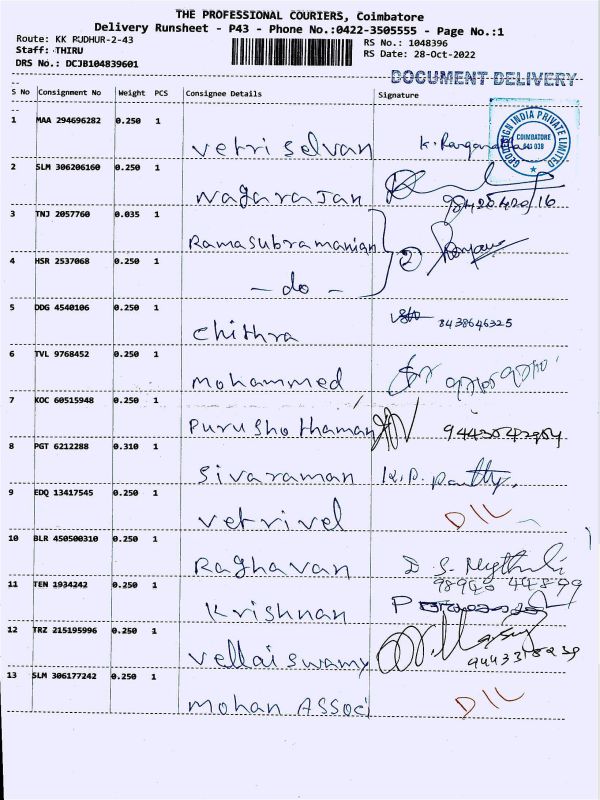 THE PROFESSIONAL COURIERS, Coimbatore
Delivery Runsheet - P43 - Phone No.:0422-3505555 - Page No.:1
Route: KK PUDHUR-2-43
RS No.: 1048396
Staff: THIRU
RS Date: 28-Oct-2022
DRS No.: DCJB104839601
DOCUMENT DELIVERY
S No Consignment No Weight PCS Consignee Details Signature
1 MAA 294696282 0.250 1
GEODESIGN INDIA PRIVATE LIMITED
COIMBATORE
641 038
vetri selvan K. Ranganatha
2 SLM 306206160 0.250 1
Nagarajan
3 TNJ 2057760 0.035 1
Ramasubramanian
4 HSR 2537068 0.250 1
- do - 2
5 DDG 4540106 0.250 1
chithra 8438646325
6 TVL 9768452 0.250 1
mohammed
7 KOC 60515948 0.250 1
Purushothaman
8 PGT 6212288 0.310 1
Sivaraman K.P.
9 EDQ 13417545 0.250 1
vetrivel D/L
10 BLR 450500310 0.250 1
Raghavan D. S. Mythili
11 TEN 1934242 0.250 1
98940 44899
Krishnan P
12 TRZ 215195996 0.250 1
vellaiswamy
13 SLM 306177242 0.250 1
mohan Associ D/L